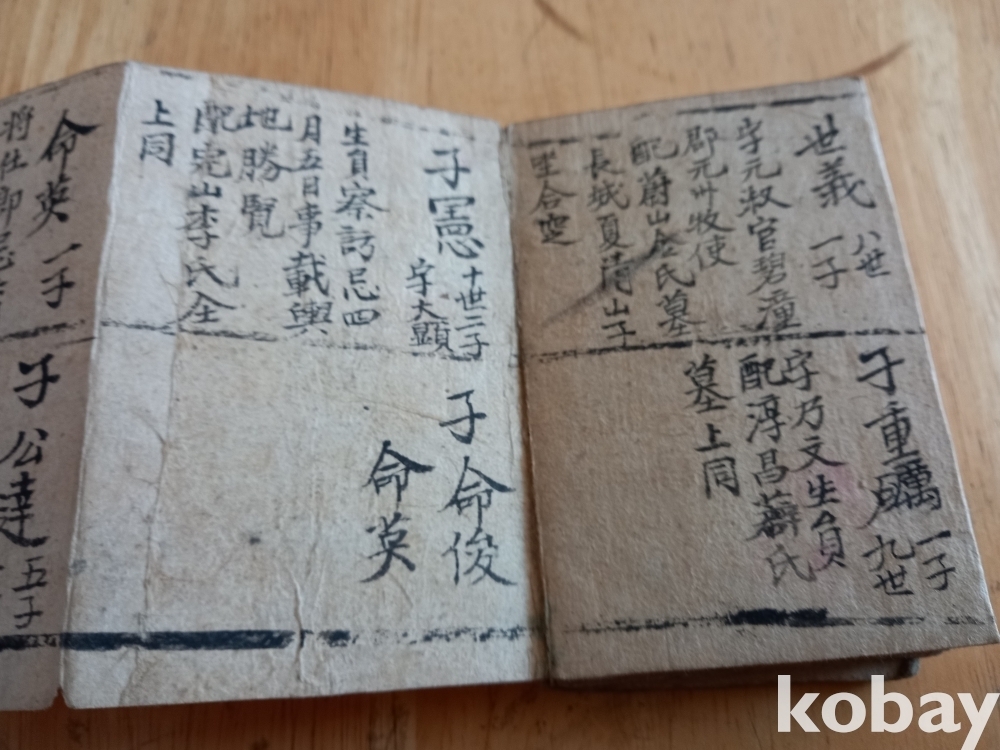 世義 八世
一子
字元叔官碧潼
郡元卅牧使
配蔚山金氏墓
長城夏淸山子
坐合窆
子重礪 一子
九世
字乃文生員
配淳昌薛氏
墓上同
子憲 十世二子
字大顯
生員察訪忌四
月五日事載輿
地勝覽
配完山李氏仝
上同
子命俊
命英
命英 一子
將仕郎忌
子公達 五子
kobay